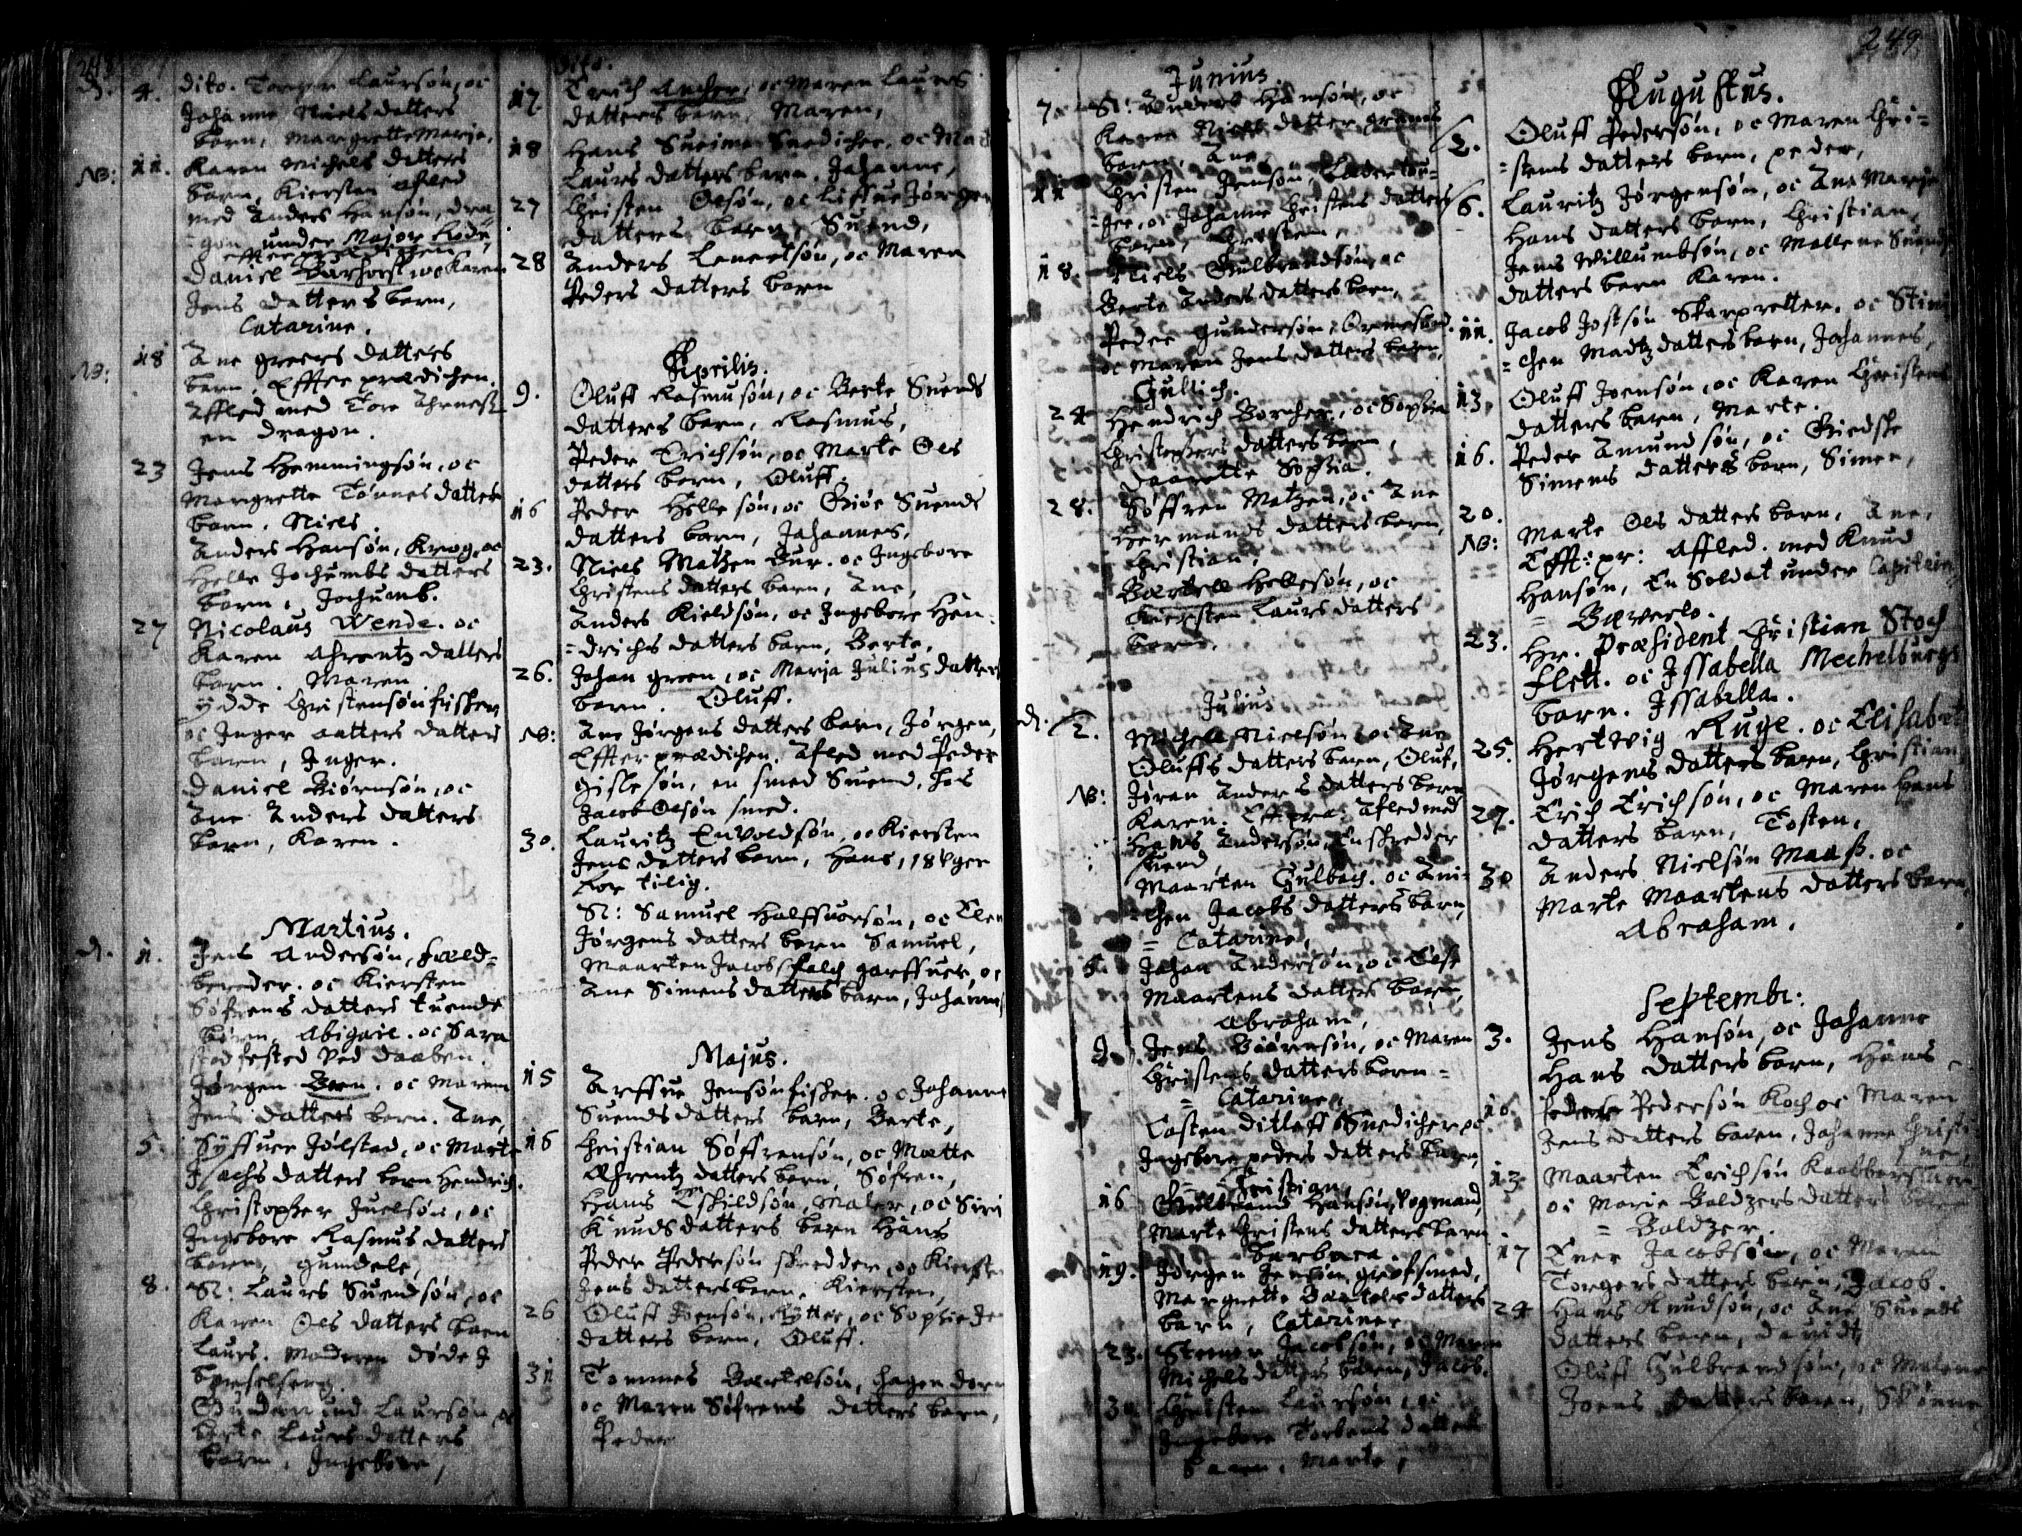 248
dito. Torger Laursøn, oc
4.
Johanne Niels datters
barn, Margrette Marja.
NB: 11. Karen Michels datters
barn, Kiersten afled
med Anders Hansøn, dra-
=gon under Major Rode,
effter prædichen
Daniel Barhorst oc Karen
Jens datters barn,
Catarine.
NB: 18 Ane Greers datters
barn. Effter prædichen.
Affled med Tore
en dragon.
23 Jens Hemmingsøn, oc
Margrette Tønnes datters
barn. Niels.
Anders Hansøn, Krog, oc
Helle Jochumbs datters
barn, Jochumb.
27 Nicolaus Wende. oc
Karen Ahrentz datters
barn. Maren
Ydde Christensøn fisker
oc Inger datters
barn, Inger.
Daniel Biørnsøn, oc
Ane Anders datters
barn, Karen.
Martius.
1. Jens Andersøn, Feld-
bereder. oc Kiersten
Søfrens datters tuende
børn, Abigaie. oc Sara
stadfested ved daaben.
Jørgen Bern. oc Maren
Jens datters barn. Ane,
5. Syffuer Jolstad, oc Marte
Isachs datters barn Hendrich.
Christopher Juelsøn, oc
Ingebore Rasmus datters
barn, Gundele,
8. Sl: Laurs Suendsøn, oc
Karen Ols datters barn
Laurs. Moderen døde I
barselseng.
Gudmund Laursøn oc
Laurs datters
barn, Ingebore,
Dito.
17. Erich Ancher, oc Maren Laurs
datters barn, Maren,
18 Hans Sueime Snedicher. oc
Laurs datters barn, Johanne,
27 Christen Olsøn, oc Liffue Jørgen
datters barn, Suend,
28 Anders Lenertsøn, oc Maren
Peders datters barn
Aprilis.
9. Oluff Rasmusøn, oc Berte Suends
datters barn, Rasmus,
Peder Erichsøn, oc Marte Ols
datters barn, Oluff.
16 Peder Hellesøn, oc Giøe Suends
datters barn, Johannes,
23. Niels Matzen Bur. oc Ingebore
Christens datters barn, Ane,
Anders Kieldsøn, oc Ingebore Hen-
=drichs datters barn, Berte,
26. Johan Green, oc Marja Julius datters
barn. Oluff.
NB: Ane Jørgens datters barn, Jørgen,
Effter prædichen. Afled med Peder
Gislesøn, en smed Suend, hos
Jacob Olsøn smed.
30. Lauritz Enuoldsøn, oc Kiersten
Jens datters barn, Hans, 18 Uger
for tilig.
Sl: Samuel Halffuorsøn, oc Elen
Jørgens datters barn Samuel,
Maarten Jacobs Falch garffuer, oc
Ane Simens datters barn, Johannes
Majus.
15 Arffue Jensøn fisker. oc Johanne
Suends datters barn, Berte,
16 Christian Søffrensøn, oc Mætte
Ahrentz datters barn, Søfren,
Hans Eskildsøn, Maler, oc Siri
Knuds datters barn Hans
Peder Pedersøn skredder, oc Kiersten
Jens datters barn, Kiersten,
26 Oluff Joensøn, Rytter, oc Sophie
datters barn, Oluff.
31 Tommes Bærtelsøn, Hagendorn
oc Maren Søfrens datters barn,
Peder
249
Junius.
7. Sl: Anders Hansøn, oc
Karen Niels datter
barn, Ane
11 Christen Jensøn,
oc Johanne Christens datters
barn, Christen,
18. Niels Gulbrandsøn oc
Berte Anders datters barn,
Peder Gundersøn,
oc Maren Jens datters barn,
Gullich.
24 Hendrich Borcher, oc Sophia
Christophers datters barn,
Daarette Sophia.
28. Søffren Matzen, oc Ane
Hermands datters barn,
Christian,
Bærtell Hellesøn, oc
Kiersten Laurs datters
barn,
Julius
2. Michell Nielsøn oc Ane
Oluffs datters barn, Oluf,
NB: Jøran Anders datters barn
Karen. Eff: pre: Afled med
Hans Andersøn, En skredder
suend
Maarten Gulbach. oc Ani-
=chen Jacobs datters barn,
= Catarine,
5. Johan Andersøn, oc Else
Maartens datters barn,
Abraham,
9. Jens Biørnsøn, oc Maren
Christens datters barn =
= Catarine,
Casten Ditleff Snedicher oc
Ingebore Peders datters barn,
Christian,
16 Gulbrand Hansøn, Vogmand,
Marte Christens datters barn
Barbara.
19. Jørgen Jensøn, Grofsmed,
Margrette Bærtels datters
barn, Catarine.
23. Steener Jacobsøn, oc Maren
Michels datters barn, Jacob.
30 Christen Laursøn, oc
Ingebore Torbens datters
barn, Marte,
Augustus.
2. Oluff Pedersøn, oc Maren Chri-
=stens datters barn, Peder,
6. Lauritz Jørgensøn, oc Ane Marja
Hans datters barn, Christian,
Jens Willumbsøn, oc Mallene Suends
datters barn Karen.
11. Jacob Jostsøn Skarpretter, oc Stine
=chen Madtz datters barn, Johannes,
13. Oluff Joensøn, oc Karen Christens
datters barn, Marte.
16. Peder Amundsøn, oc Giedske
Simens datters barn, Simen,
20. Marte Ols datters barn, Ane,
NB: Efft: pr: Affled med Knud
Hansøn, En Soldat under Capitein
= Baverlo.
23. Hr. Præsident Christian Stoch
flett. oc Issabella Mechelburgs
barn. Issabella.
25. Hertvig Ruge. oc Elisabet
Jørgens datters barn, Christian,
27. Erich Erichsøn, oc Maren Hans
datters barn, Tosten,
30 Anders Nielsøn Maas. oc
Marte Maartens datters barn
Abraham.
Septembr:
3. Jens Hansøn, oc Johanne
Hans datters barn, Hans
10. Peder Pedersøn Koch oc Maren
Jens datters barn, Johanne Christi
ne
13 Maarten Erichsøn Kaabberslager
oc Marie Baldzers datters barn
= Baldzer
17 Ener Jacobsøn, oc Maren
Torgers datters barn, Jacob.
24 Hans Knudsøn, oc Ane Suends
datters barn, Davidt,
Oluff Gulbrandsøn, oc Malene
Joens datters barn,